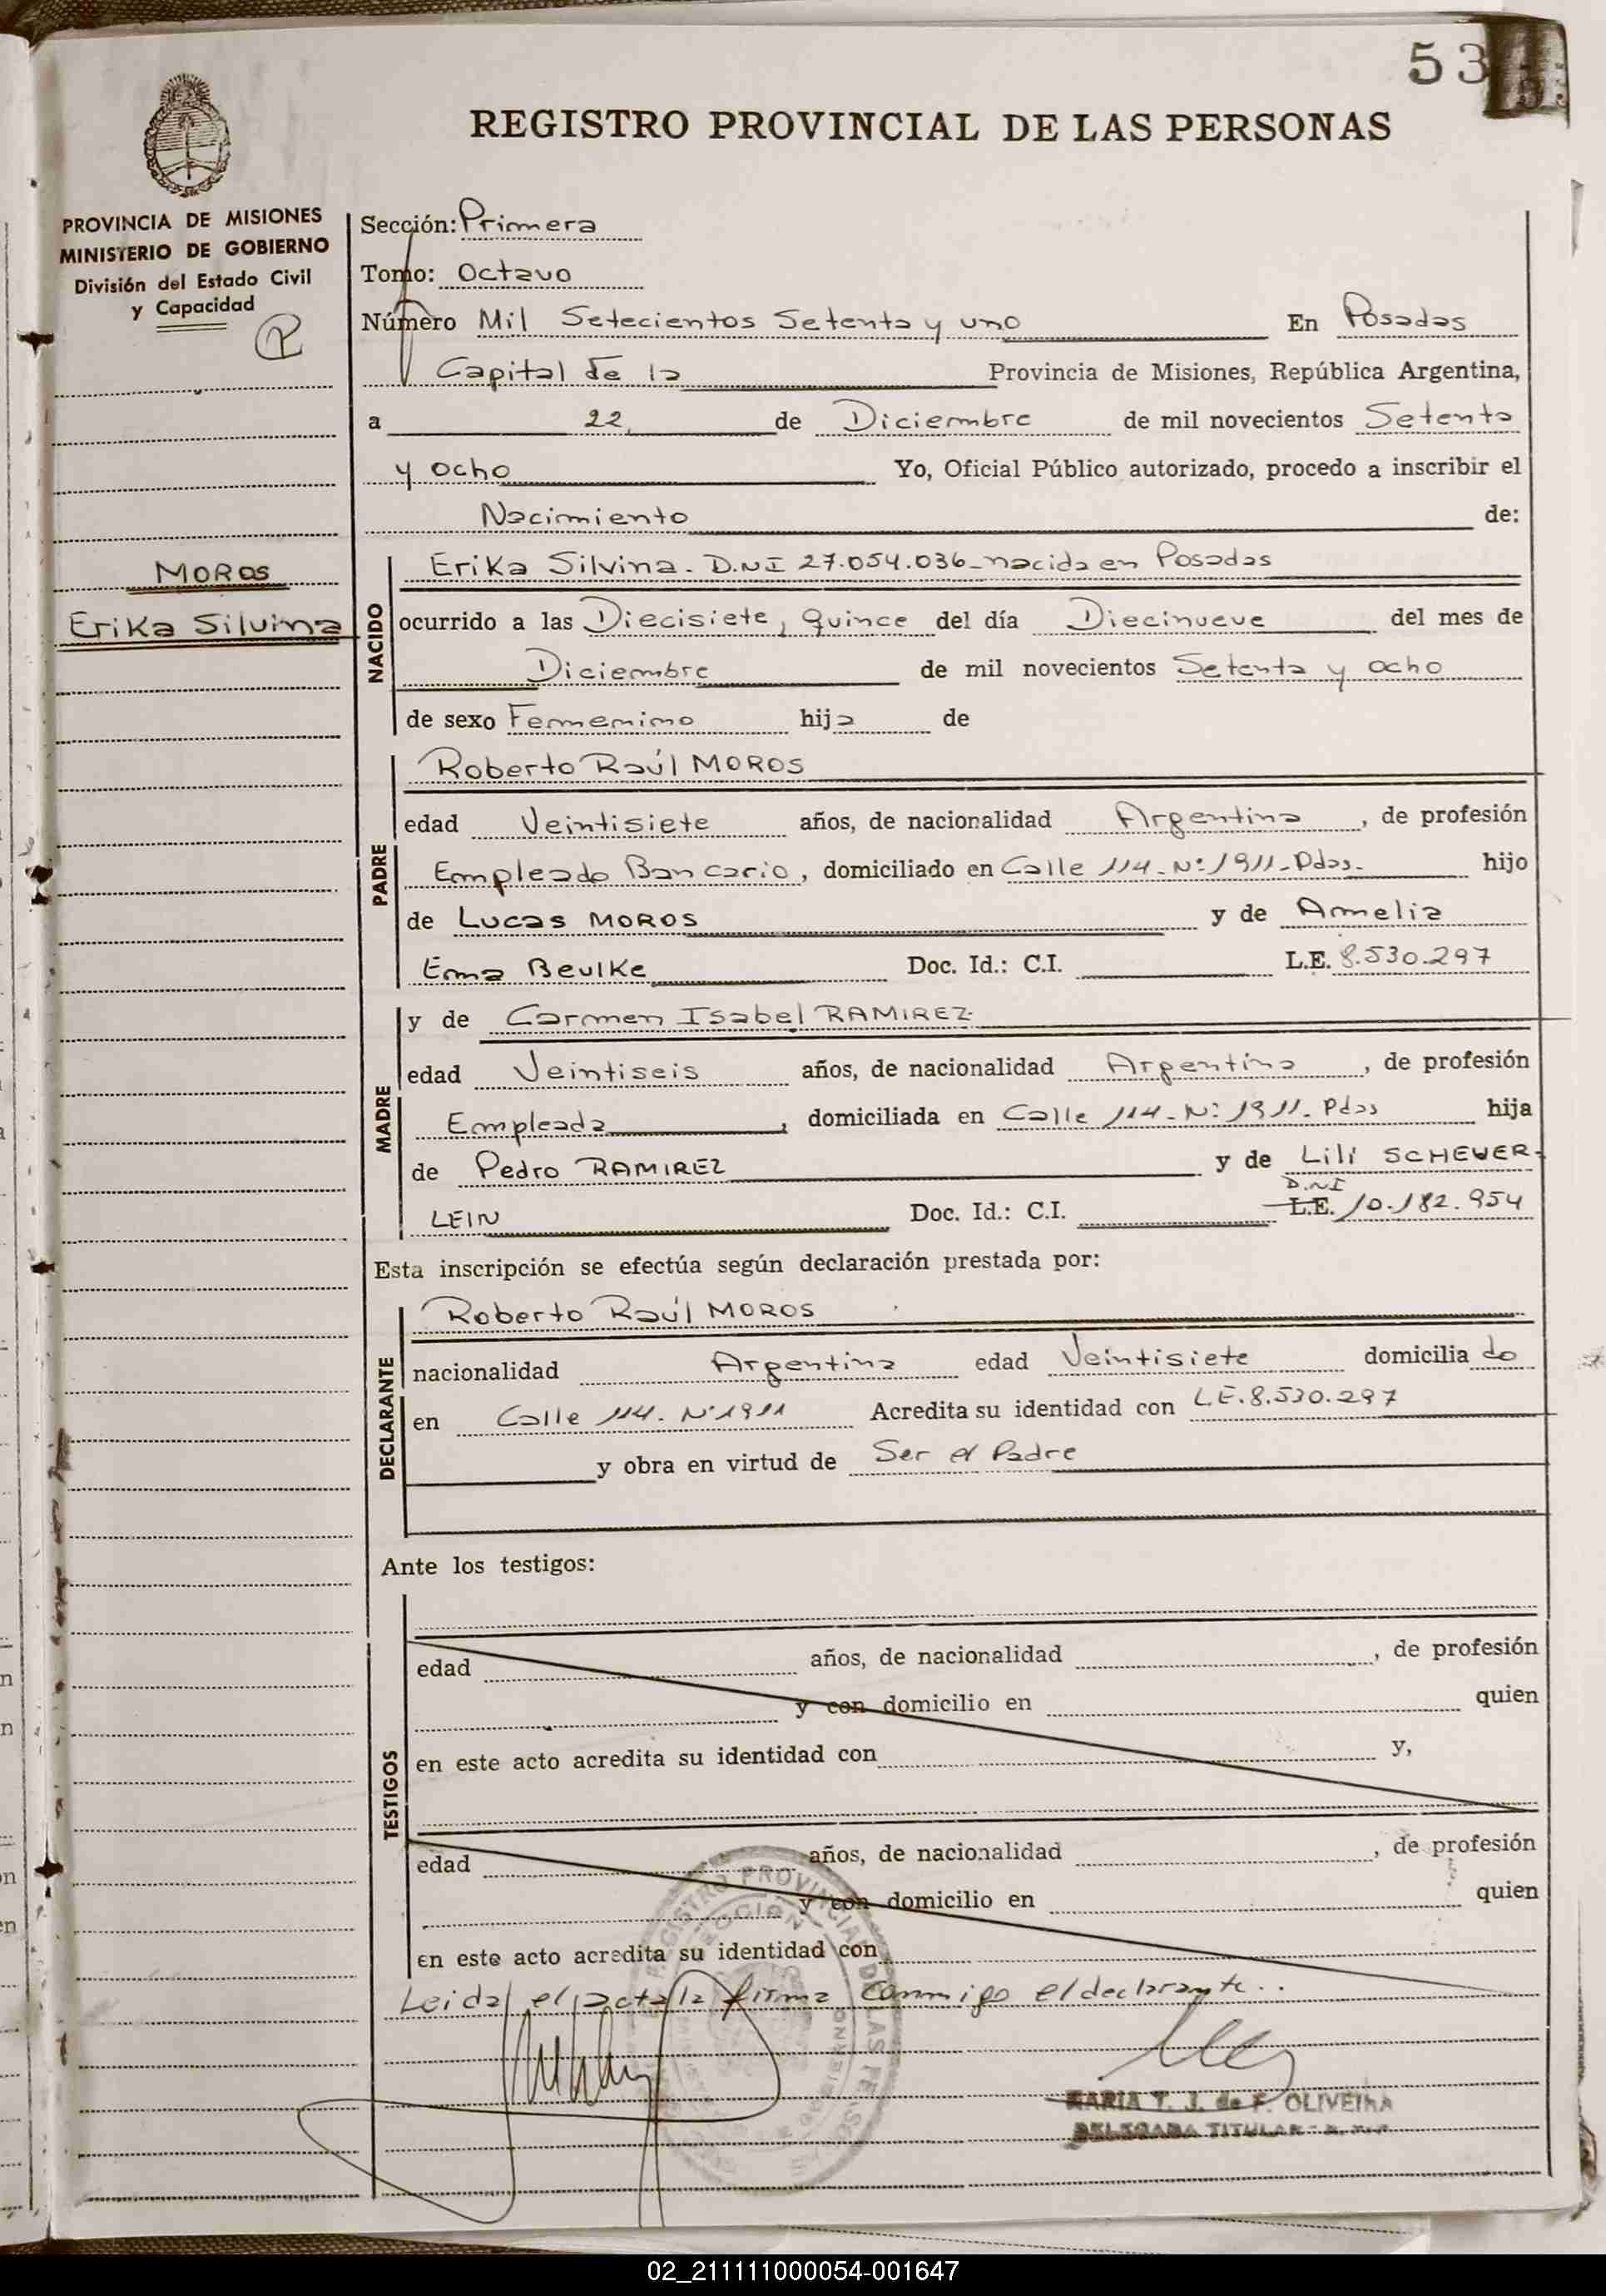 53
REGISTRO PROVINCIAL DE LAS PERSONAS
PROVINCIA DE MISIONES
MINISTERIO DE GOBIERNO
División del Estado Civil
y Capacidad
Sección: Primera
Tomo: Octavo
Número Mil Setecientos Setenta y uno En Posadas
Capital de la Provincia de Misiones, República Argentina,
a 22 de Diciembre de mil novecientos Setenta
y ocho Yo, Oficial Público autorizado, procedo a inscribir el
Nacimiento de:
MOROS
Erika Silvina
NACIDO
Erika Silvina. D.N.I 27.054.036_nacida en Posadas
ocurrido a las Diecisiete, quince del día Diecinueve del mes de
Diciembre de mil novecientos Setenta y ocho
de sexo Femenino hija de
PADRE
Roberto Raúl MOROS
edad Veintisiete años, de nacionalidad Argentina, de profesión
Empleado Bancario, domiciliado en Calle 114-Nº:1911-Pdas. hijo
de Lucas MOROS y de Amelia
Erna Beulke Doc. Id.: C.I. L.E. 8.530.297
MADRE
y de Carmen Isabel RAMIREZ
edad Veintiseis años, de nacionalidad Argentina, de profesión
Empleada, domiciliada en Calle 114-Nº:1911-Pdas hija
de Pedro RAMIREZ y de Lili SCHEUER-
D.N.I
LEIN Doc. Id.: C.I. L.E. 10.182.954
Esta inscripción se efectúa según declaración prestada por:
DECLARANTE
Roberto Raúl MOROS
nacionalidad Argentina edad Veintisiete domiciliado
en Calle 114. Nº1911 Acredita su identidad con L.E.8.530.297
y obra en virtud de Ser el Padre
Ante los testigos:
TESTIGOS
edad años, de nacionalidad , de profesión
y con domicilio en quien
en este acto acredita su identidad con y,
edad años, de nacionalidad , de profesión
y con domicilio en quien
en este acto acredita su identidad con
Leida el acta la firma conmigo el declarante..
REGISTRO PROVINCIAL DE LAS PERSONAS
MARIA T. J. de F. OLIVEIRA
DELEGADA TITULAR
02_211111000054-001647